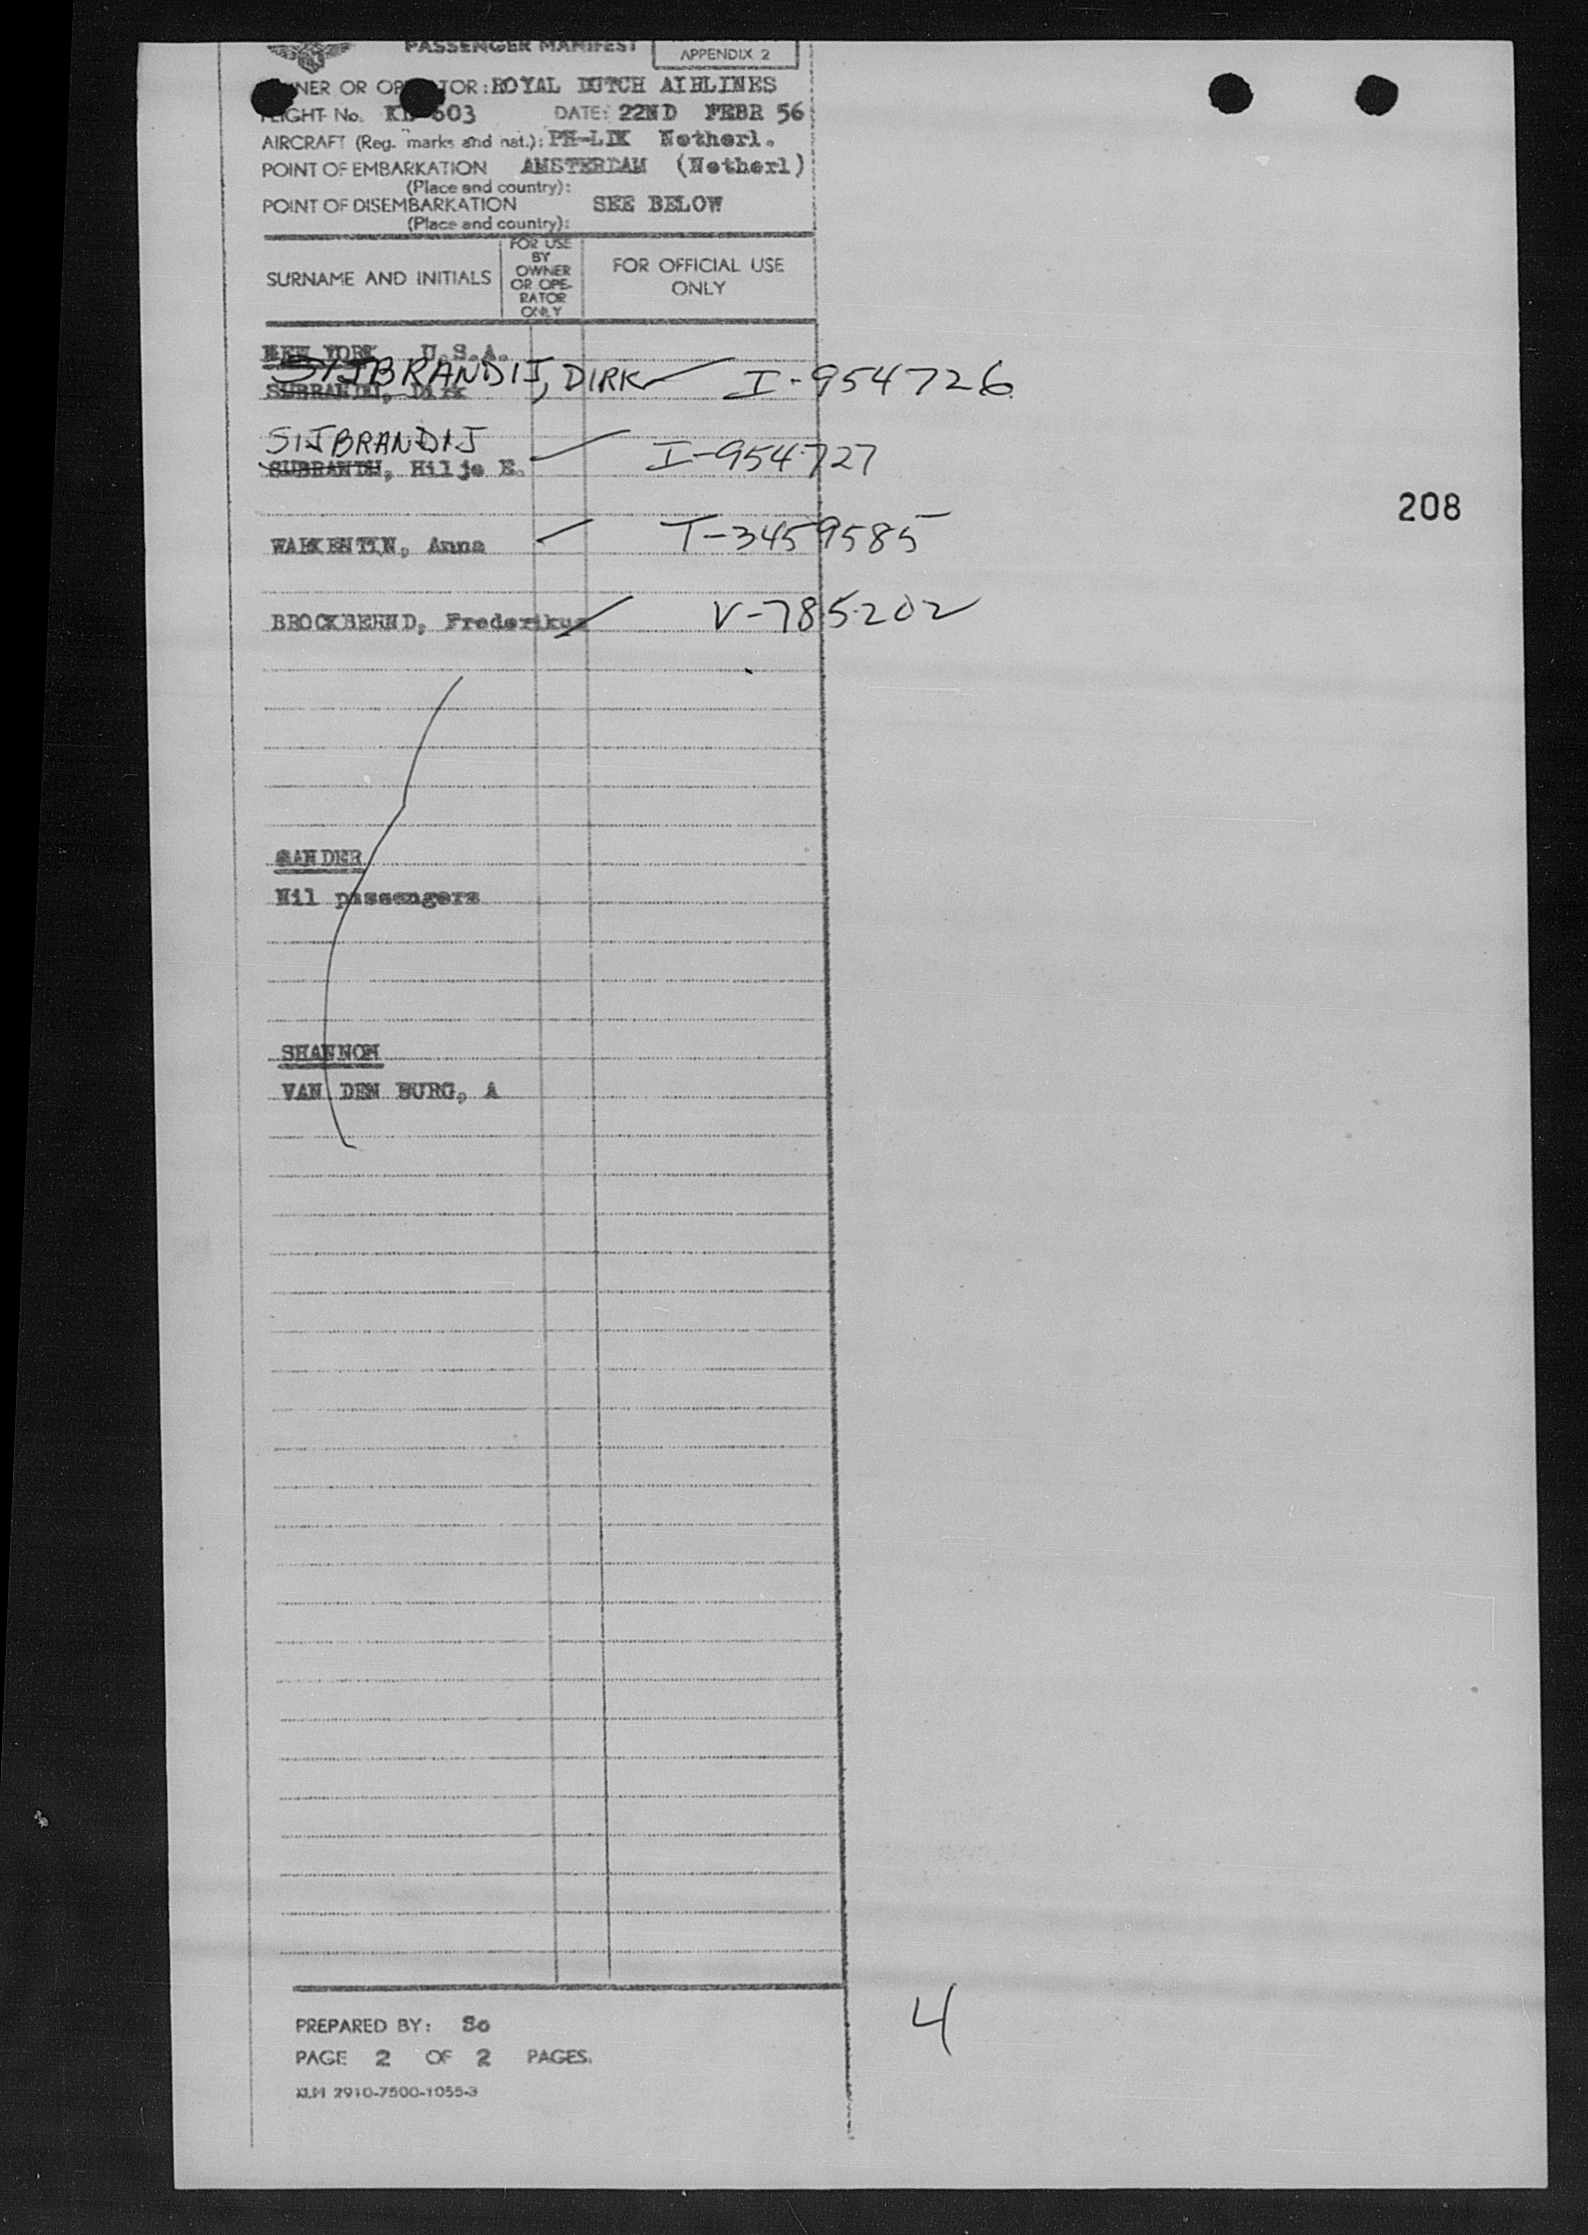 PASSENGER MANIFEST
APPENDIX 2
NER OR OP TOR: ROYAL DUTCH AIRLINES
IGHT No. KL 603 DATE: 22ND FEBR 56
AIRCRAFT (Reg. marks and nat.): PH-LIK Netherl.
POINT OF EMBARKATION AMSTERDAM (Netherl)
(Place and country):
POINT OF DISEMBARKATION SEE BELOW
(Place and country):
SURNAME AND INITIALS
FOR USE
BY
OWNER
OR OPE-
RATOR
ONLY
FOR OFFICIAL USE
ONLY
NEW YORK U.S.A.
SIJBRANDIJ, DIRK I-954726
Dirk
SIJBRANDIJ
Hilje E. I-954727
WARKENTIN, Anna T-3459585
BROCKBERND, Frederikus V-785202
GANDER
Nil passengers
SHANNON
VAN DEN BURG, A
208
PREPARED BY: So
PAGE 2 OF 2 PAGES.
KLM 2910-7500-1055-3
4